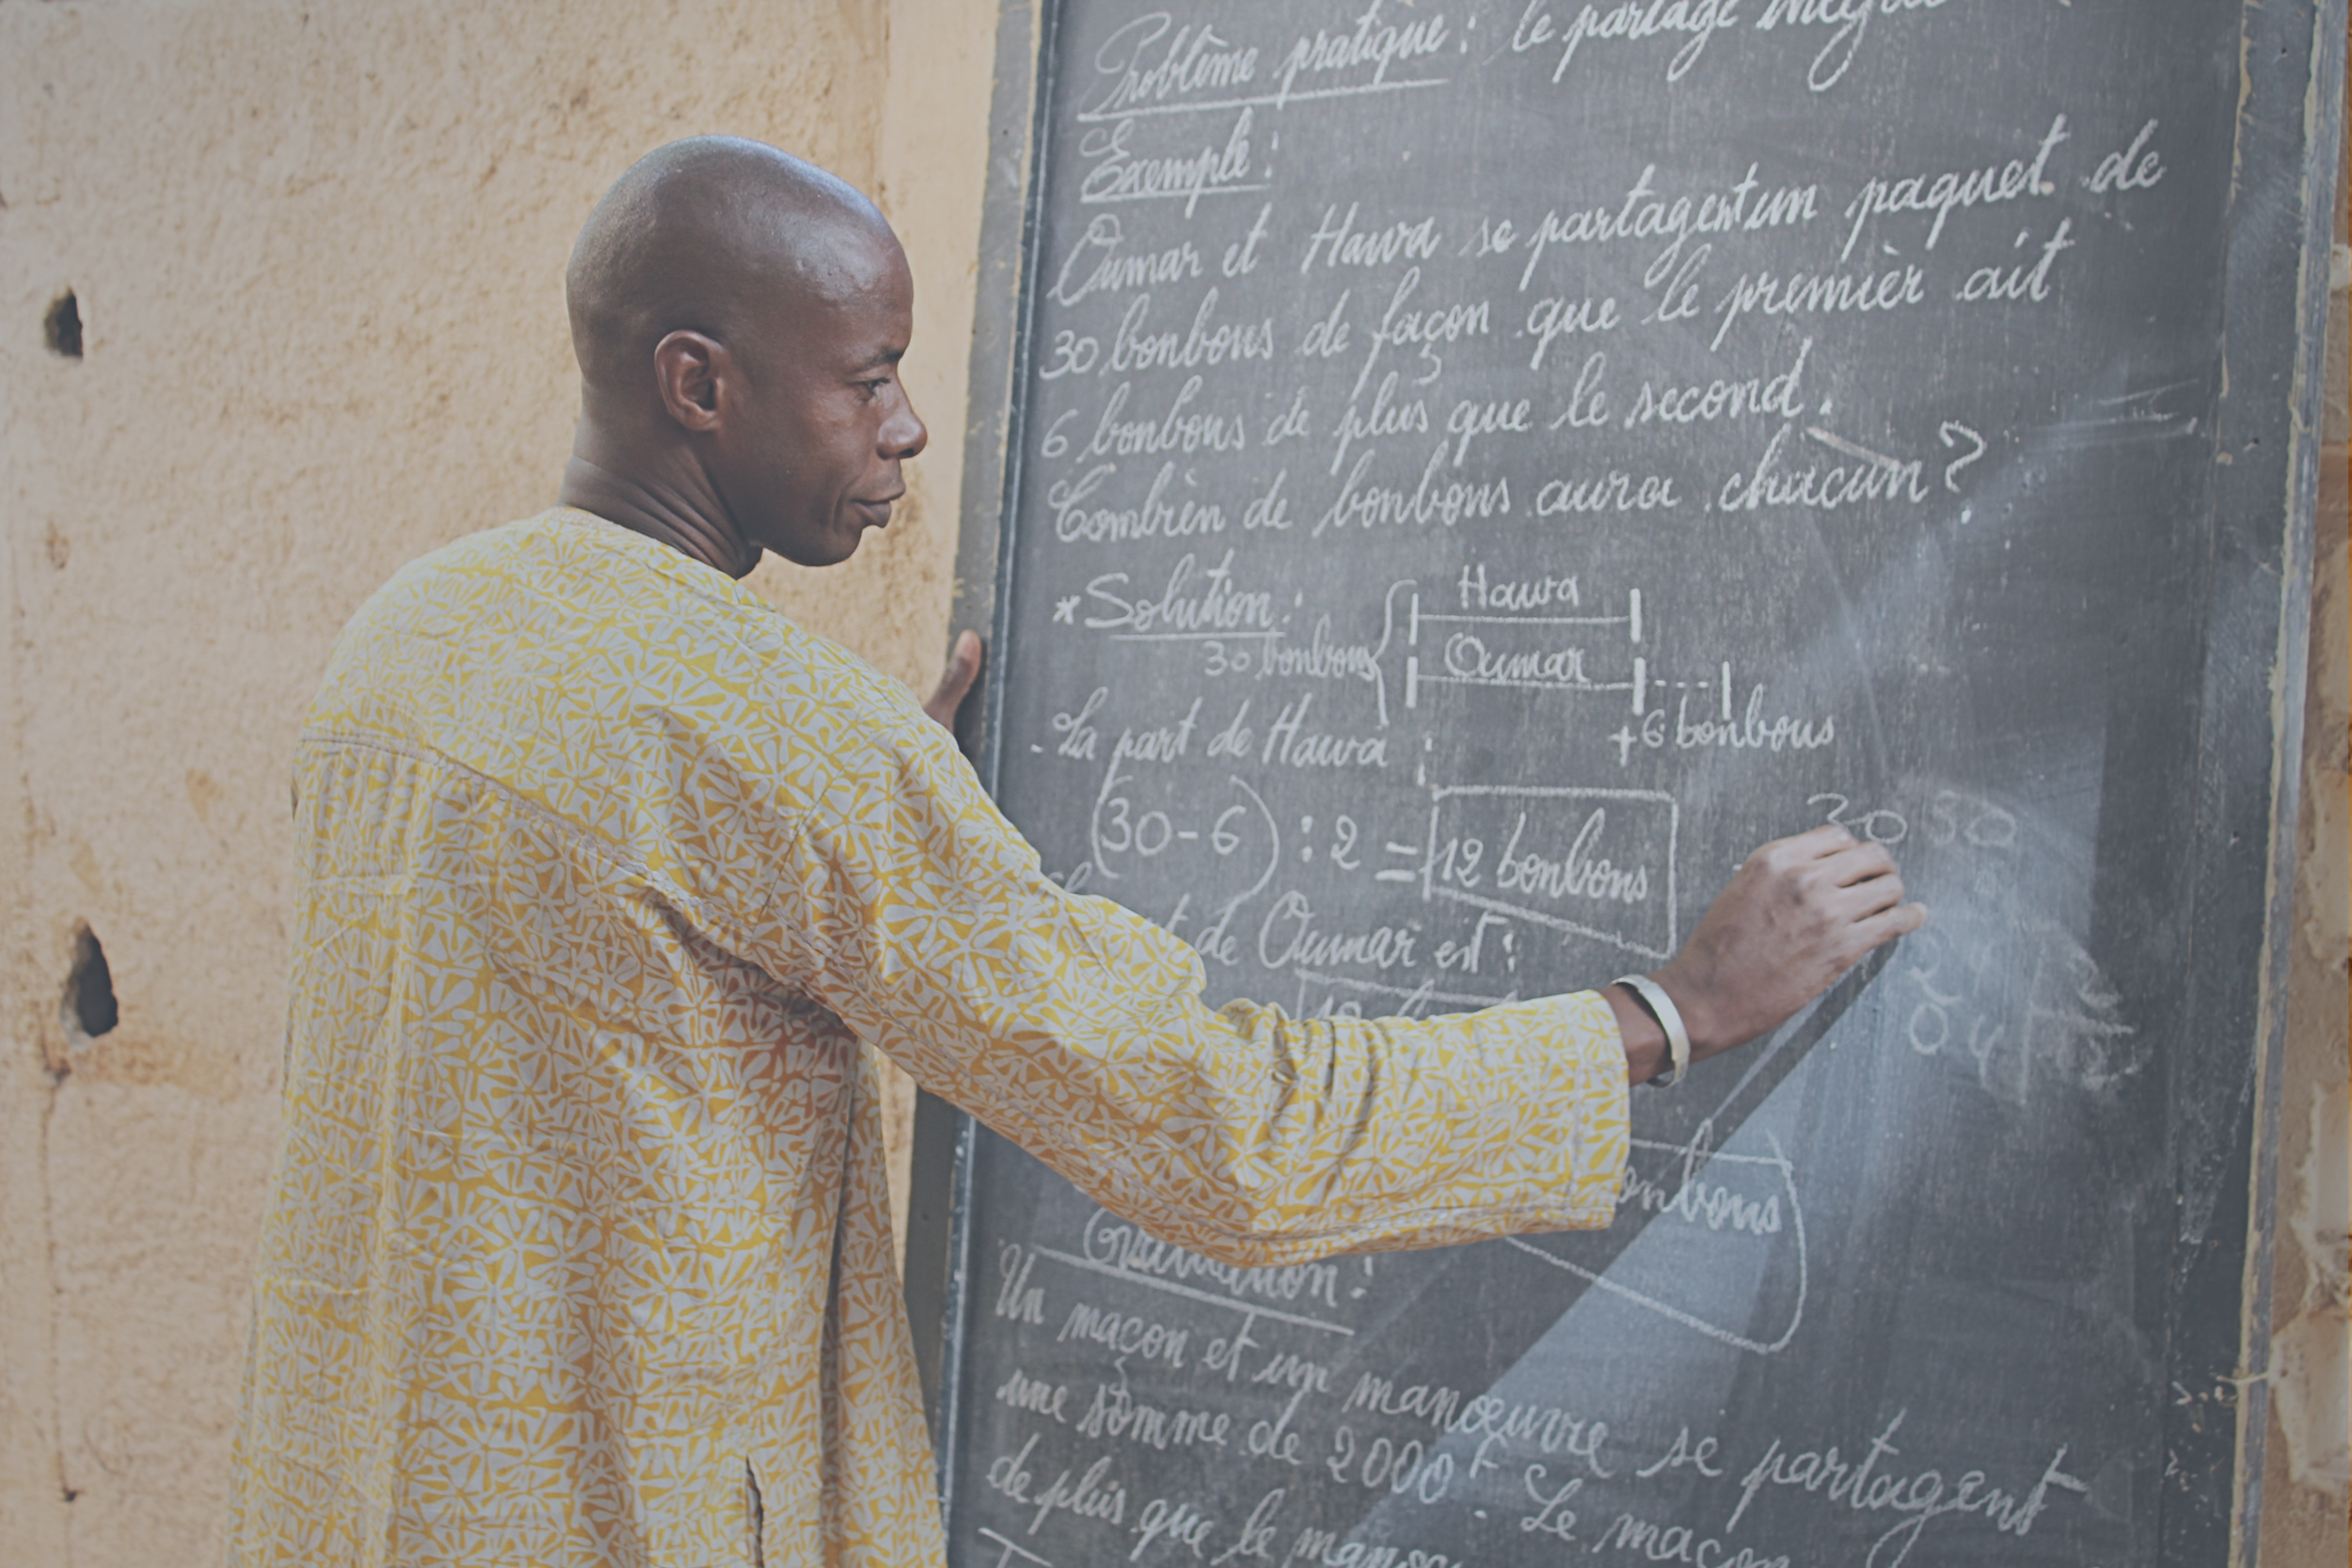 Problème pratique : le partage
Exemple :
Oumar et Hawa se partagent un paquet de
30 bonbons de façon que le premier ait
6 bonbons de plus que le second.
Combien de bonbons aura chacun ?
* Solution :
Hawa
30 bonbons
Oumar
+6 bonbons
. La part de Hawa :
(30-6) : 2 = 12 bonbons
30 50
de Oumar est :
2
04
Un maçon et un manœuvre se partagent
une somme de 2000F. Le maçon
de plus que le